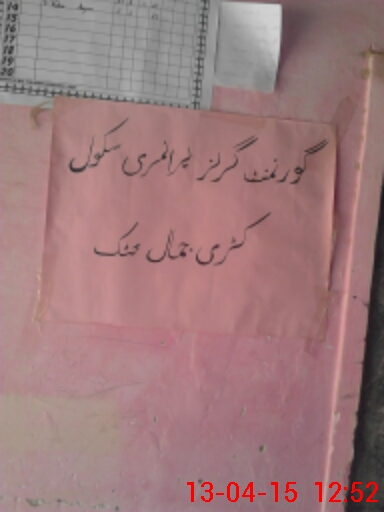 14
15
16
17
18
19
20
گورنمنٹ گرلز پرائمری سکول
کٹری جمال خٹک
13-04-15 12:52